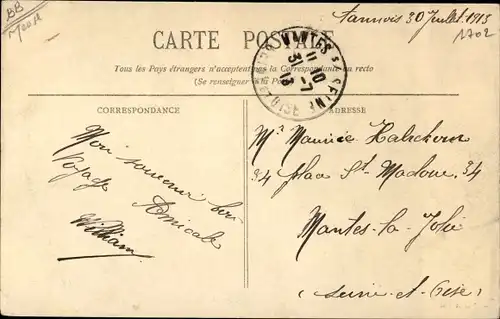 BB
Meuse
Tannois 30 Juillet 1913
1702
CARTE POSTALE
Tous les Pays étrangers n'acceptent pas la Correspondance au recto
(Se renseigner à la Poste)
MANTES S. SEINE
SEINE-ET-OISE
11-10
31-7
13
CORRESPONDANCE
ADRESSE
Mon souvenir
Voyage Amicale
William
Mr Maurice
34 place St Maclou, 34
Mantes-la-Jolie
(Seine-et-Oise)